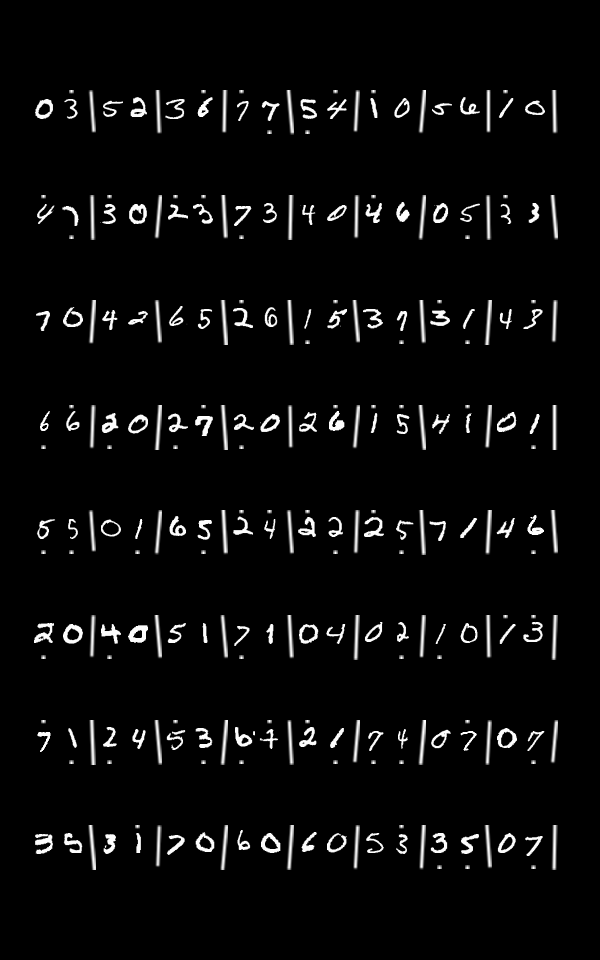 0 3̇ | 5 2 | 3 6̇ | 7̇ 7̣ | 5̣̇ 4̇ | 1̇ 0 | 5 6 | 1̇ 0 |
4̇ 7̣ | 3̇ 0 | 2̇ 3̇ | 7̣ 3 | 4 0 | 4̇ 6 | 0 5̣ | 3̇ 3 |
7 0 | 4 2 | 6 5 | 2̇ 6 | 1̣ 5̇ | 3 7̣ | 3̇ 1̣ | 4 3̇ |
6̣ 6̇ | 2̣ 0 | 2̣ 7̇ | 2̣ 0 | 2 6̇ | 1̇ 5̇ | 4 1̇ | 0 1̣ |
5̣ 5̣ | 0 1̣ | 6 5̣ | 2̇ 4̇ | 2̇ 2̣ | 2 5̣ | 7 1 | 4 6̣ |
2̣ 0 | 4̣ 0 | 5 1 | 7̣ 1 | 0 4 | 0 2̣ | 1̣ 0 | 1̇ 3̇ |
7̇ 1̣ | 2̣ 4 | 5̇ 3̣ | 6̣ 7 | 2̇ 1̣ | 7̣ 4̣ | 0 7̇ | 0 7̣ |
3 5 | 3 1̇ | 7 0 | 6 0 | 6 0 | 5 3̇ | 3̣ 5̣ | 0 7̣ |